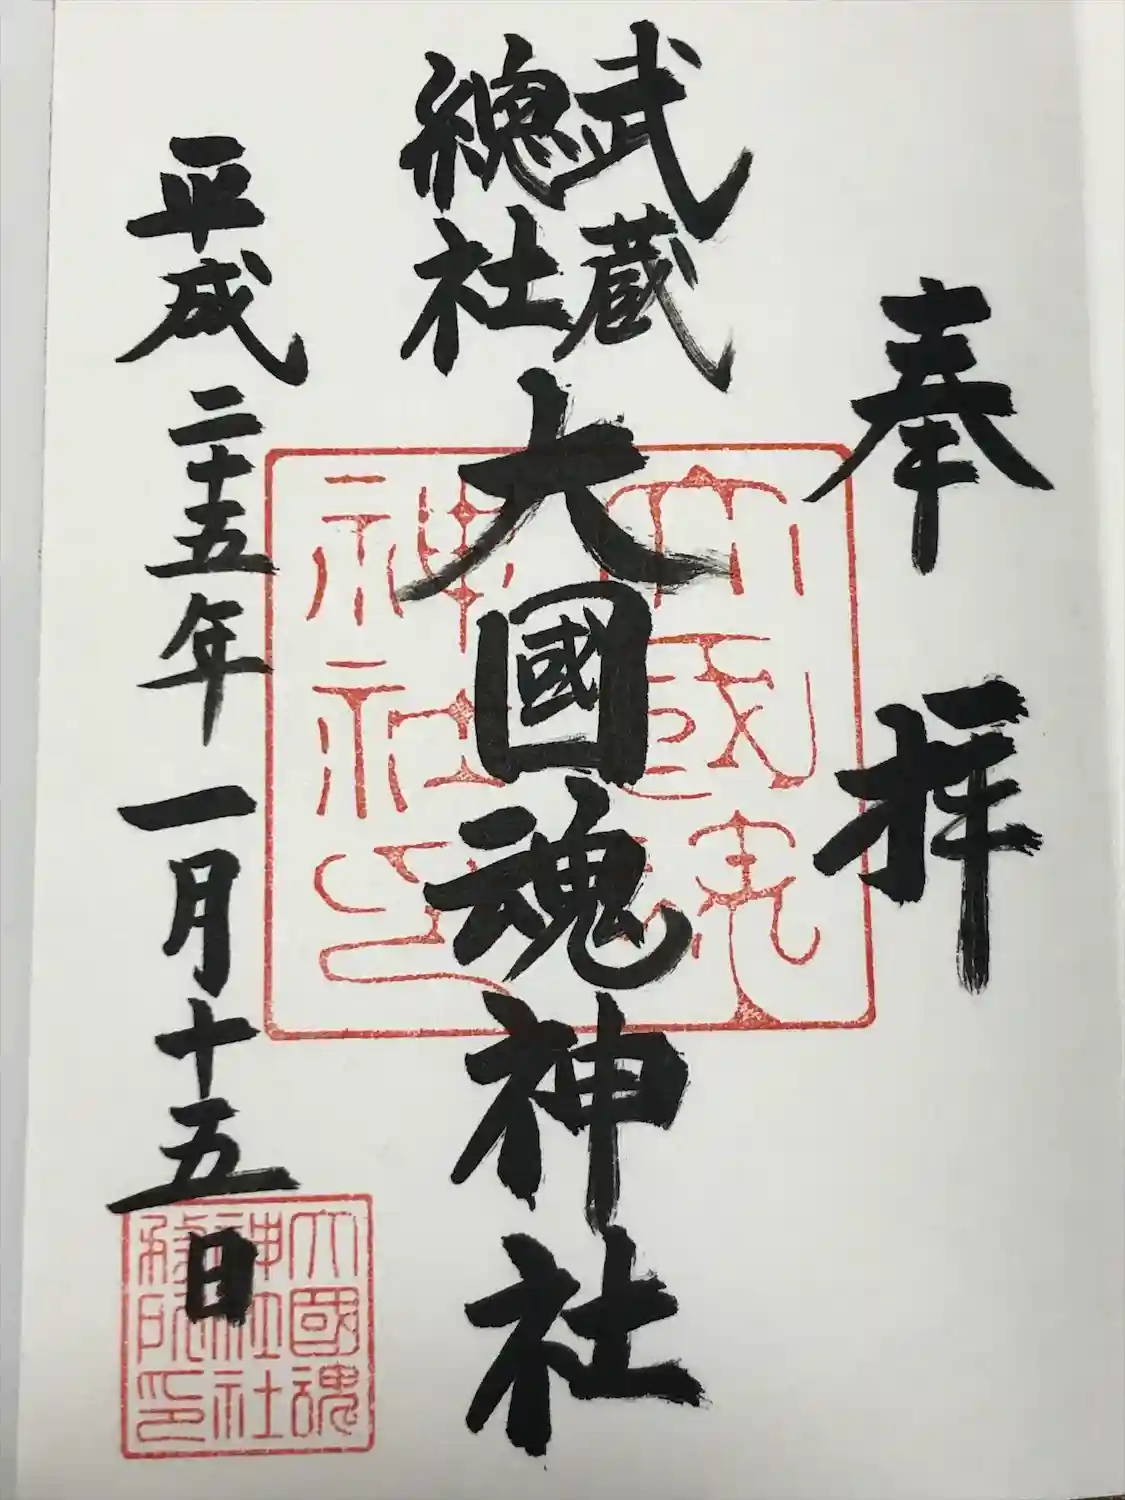 奉拝
武蔵
總社
大國魂神社
平成二十五年一月十五日
大國魂
神社之
大國魂
神社社
務所印